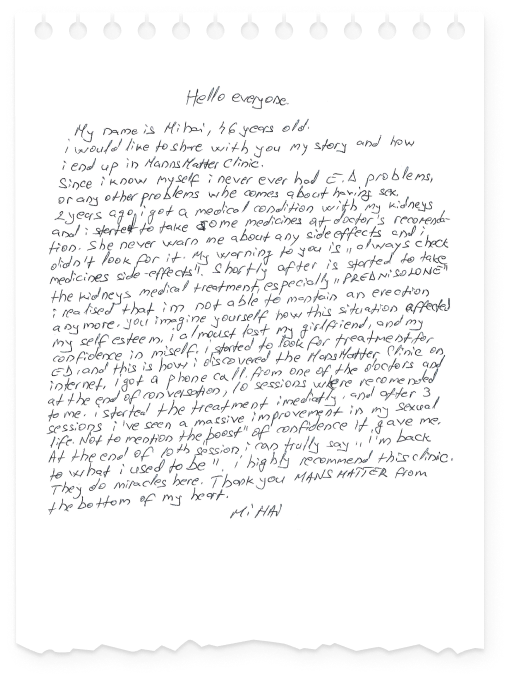 Hello everyone.
My name is Mihai, 46 years old.
i would like to share with you my story and how
i end up in MannsMatter Clinic.
Since i know myself i never ever had E.D problems,
or any other problems whe comes about having sex.
2 years ago i got a medical condition with my kidneys
and i started to take some medicines at doctor's recomenda-
tion. She never warn me about any side effects and i
didn't look for it. My warning to you is "always check
medicines side-effects". Shortly after is started to take
the kidneys medical treatment, especially "PREDNISOLONE"
i realised that im not able to mantain an erection
anymore. you imagine yourself how this situation affected
my self esteem. i almoust lost my girlfriend, and my
confidence in miself. i started to look for treatment for
ED, and this is how i discovered the MansMatter Clinic on
internet. i got a phone call from one of the doctors and
at the end of conversation, 10 sessions where recomended
to me. i started the treatment imediatly, and after 3
sessions i've seen a massive improvement in my sexual
life. Not to mention the "boost" of confidence it gave me.
At the end of 10th session i can trully say "i'm back
to what i used to be". i highly recommend this clinic.
They do miracles here. Thank you MANS MATTER from
the bottom of my heart.
MiHAI